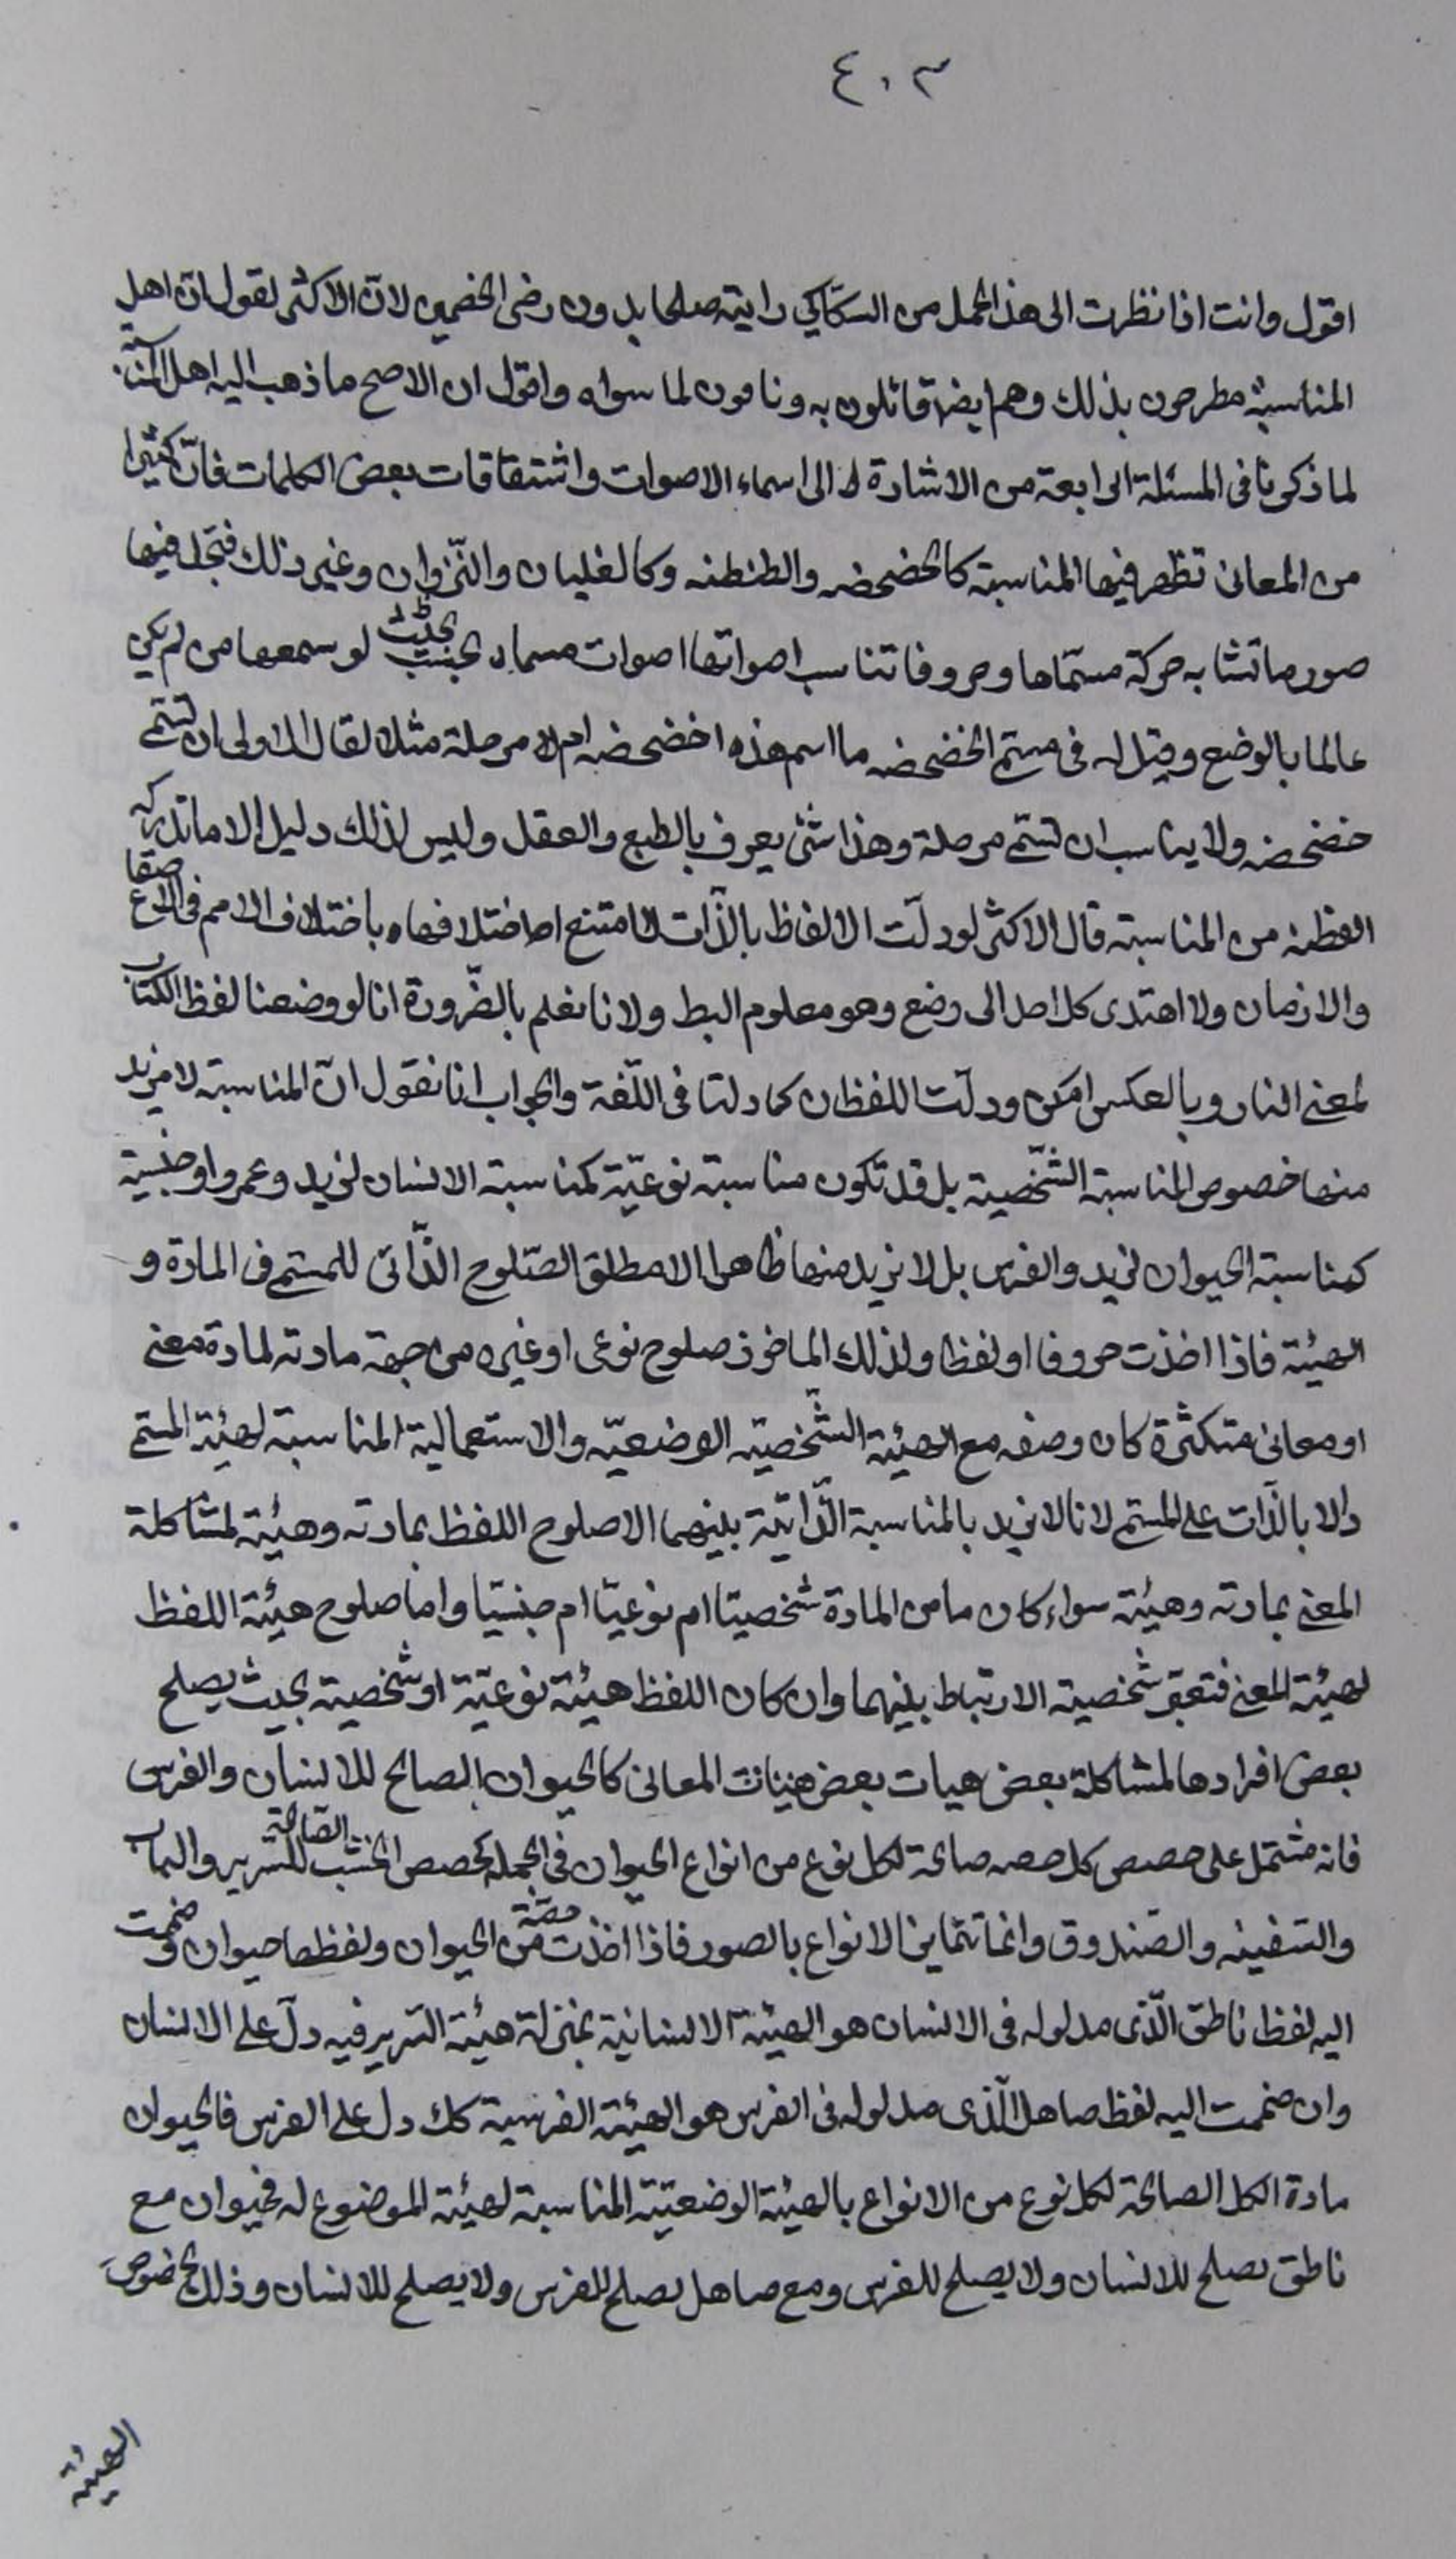 ٤٠٣
اقول وانت اذا نظرت الى هذا المحمل من السكّاكي رايته صلحا بدون رضى الخصمين لانّ الاكثر لقول انّ اهل
المناسبة مطرحون بذلك وهم ايضا قائلون به ونافون لما سواه واقول ان الاصح ما ذهب اليه اهل المناسبة
لما ذكرنا فى المسئلة الرابعة من الاشارة الى اسماء الاصوات واشتقاقات بعض الكلمات فانّ كثيرا
من المعانى تظهر فيها المناسبة كالخضخضه والطنطنه وكالغليان والنّزوان وغير ذلك فتجد فيها
صورها تشابه حركة مسمّاها وحروفا تناسب اصواتها اصوات مسماه بحيث لو سمعها من لم يكن
عالما بالوضع وقيل له فى مسمى الخضخضه ما اسم هذه اخضخضه ام لا مرحلة مثلا لقال الاولى ان تسمى
خضخضه ولا يناسب ان تسمى مرحلة وهذا شئ يعرف بالطبع والعقل وليس لذلك دليل الا ما تدركه
الفطنه من المناسبة قال الاكثر لو دلّت الالفاظ بالذّات لامتنع اختلافها باختلاف الامم فى الاصقاع
والازمان ولا اهتدى كل احد الى وضع وهو معلوم البط ولانا نعلم بالضّرورة انا لو وضعنا لفظ الكتاب
لمعنى النار وبالعكس امكن ودلّت اللفظان كما دلتا فى اللّغة والجواب انا نقول انّ المناسبة لا نريد
منها خصوص المناسبة الشّخصية بل قد تكون مناسبة نوعيّة كمناسبة الانسان لزيد وعمرو او جنسية
كمناسبة الحيوان لزيد والفرس بل لا نريد منها ظاهرا الا مطلق الصّلوح الذّاتى للمسمى فى المادة و
الهيئة فاذا اخذت حروفا او لفظا ولذلك الماخوذ صلوح نوعى او غيره من جهة مادته لمادة معنى
او معانى متكثرة كان وصفه مع الهيئة الشّخصيّة الوضعيّه والاستعمالية المناسبة لهيئة المسمى
دالا بالذّات على المسمى لانا لا نريد بالمناسبة الذّاتيّة بينهما الا صلوح اللفظ بمادته وهيئة لمشاكلة
المعنى بمادته وهيئة سواء كان ما من المادة شخصيّا ام نوعيّا ام جنسيّا وامّا صلوح هيئة اللفظ
لهيئة المعنى فتعيّن شخصية الارتباط بينهما وان كان اللفظ هيئة نوعيّة او شخصية بحيث يصلح
بعض افرادها لمشاكلة بعض هيات بعض هيئات المعانى كالحيوان الصالح للانسان والفرس
فانه مشتمل على حصص كل حصه صالحة لكل نوع من انواع الحيوان فى الجمله كحصص الخشب الصّالحة للسّرير والباب
والسّفينه والصّندوق وانما تتمايز الانواع بالصور فاذا اخذت حصّة من الحيوان ولفظها حيوان وضممت
اليه لفظ ناطق الّذى مدلوله فى الانسان هو الهيئة الانسانية بمنزلة هيئة السّرير فيه دلّ على الانسان
وان ضممت اليه لفظ صاهل الّذى مدلوله فى الفرس هو الهيئة الفرسية كك دل على الفرس فالحيوان
مادة الكل الصالحة لكل نوع من الانواع بالهيئة الوضعيّة المناسبة لهيئة الموضوع له فحيوان مع
ناطق يصلح للانسان ولا يصلح للفرس ومع صاهل يصلح للفرس ولا يصلح للانسان وذلك بخصوص
الهيئة